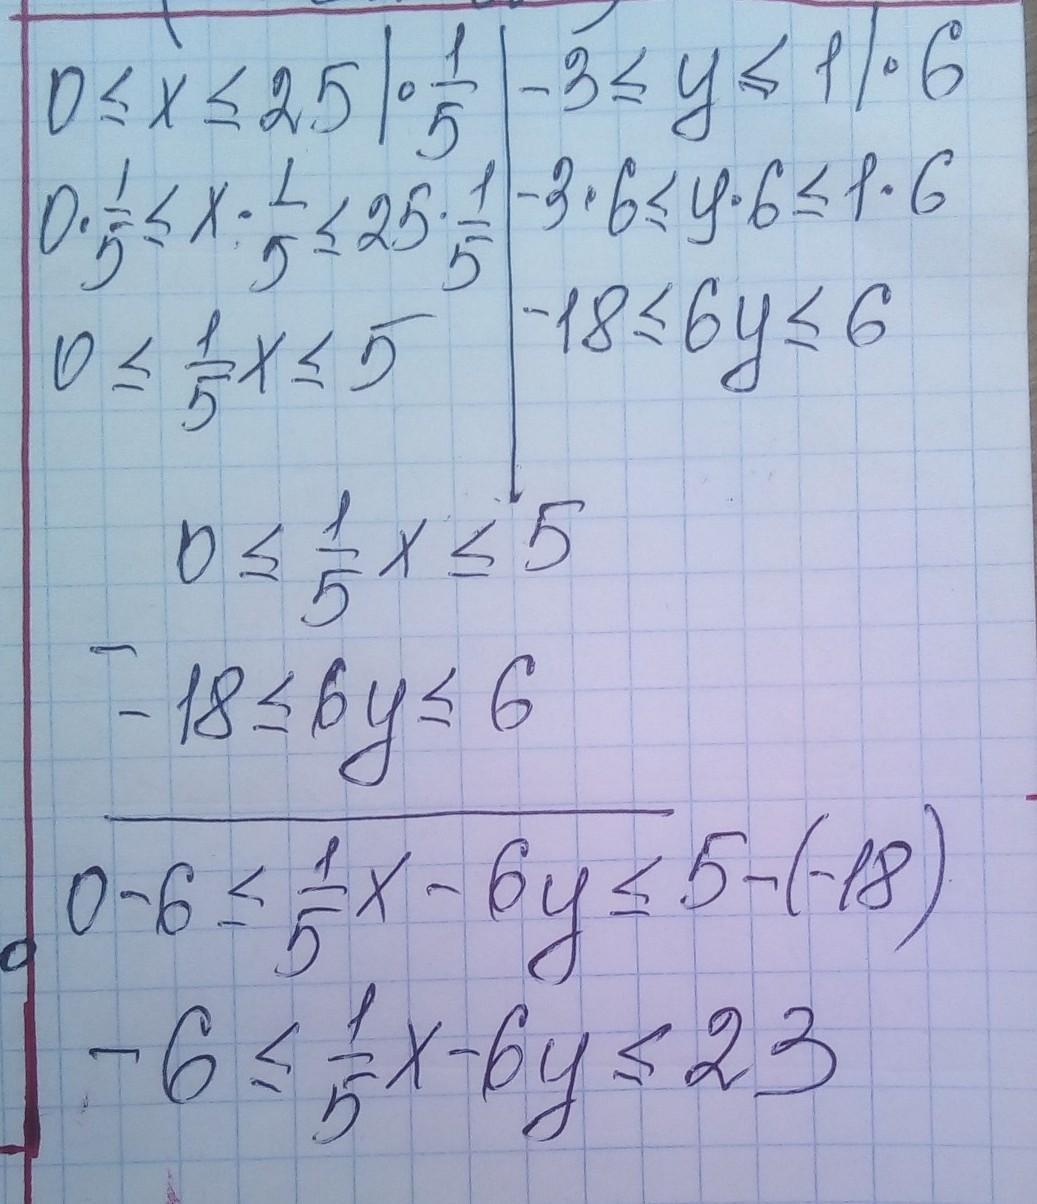 0 ≤ x ≤ 25 | · 1/5
0 · 1/5 ≤ x · 1/5 ≤ 25 · 1/5
0 ≤ 1/5 x ≤ 5
-3 ≤ y ≤ 1 | · 6
-3 · 6 ≤ y · 6 ≤ 1 · 6
-18 ≤ 6y ≤ 6
0 ≤ 1/5 x ≤ 5
-
-18 ≤ 6y ≤ 6
0 - 6 ≤ 1/5 x - 6y ≤ 5 - (-18)
-6 ≤ 1/5 x - 6y ≤ 23